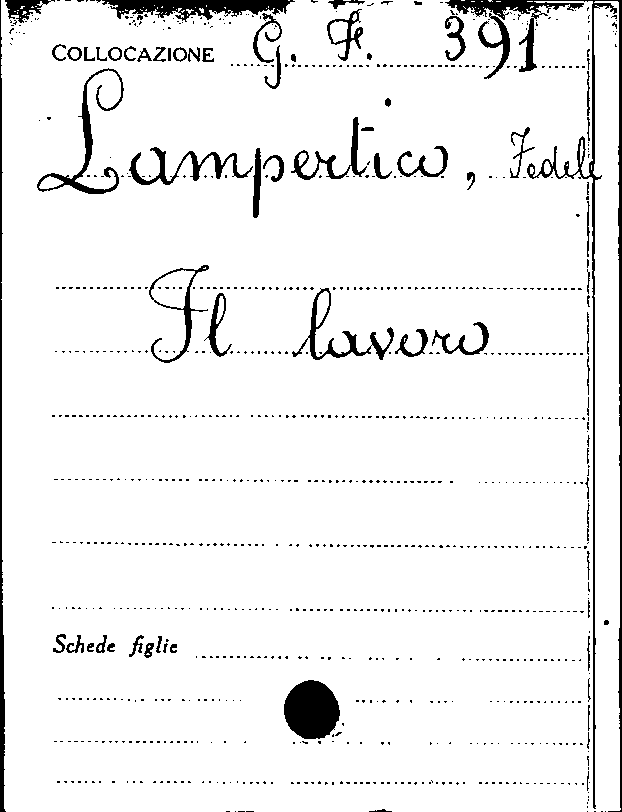 COLLOCAZIONE G. F. 391
Lampertico, Fedele
Il lavoro
Schede figlie